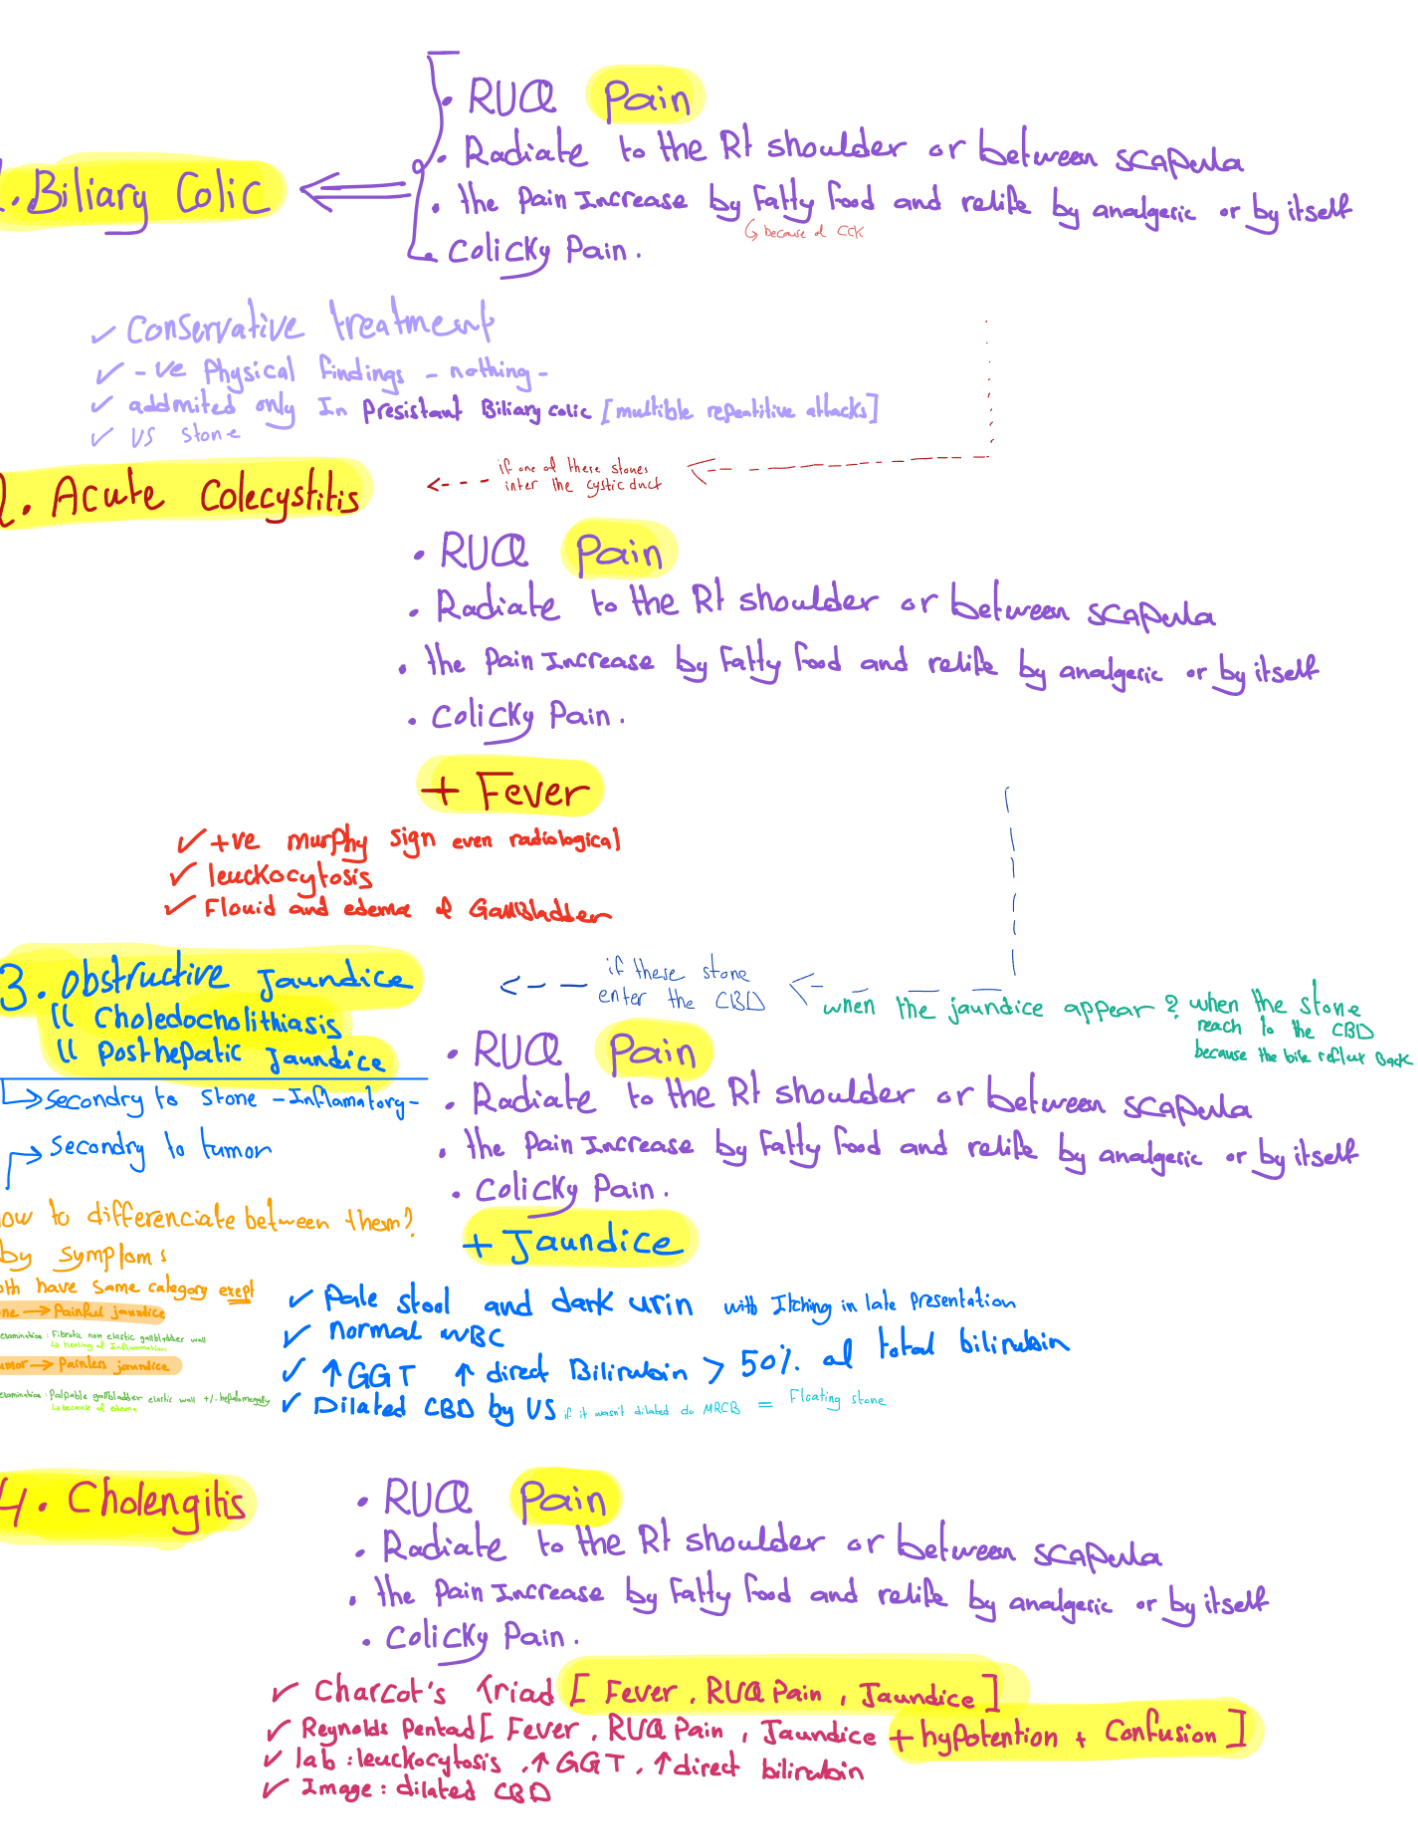 • RUQ Pain
• Radiate to the Rt shoulder or between scapula
1. Biliary Colic
• the Pain Increase by Fatty Food and relife by analgesic or by itself
because of CCK
• Colicky Pain.
✓ Conservative treatment
✓ -ve Physical findings - nothing -
✓ addmited only In Presistant Biliary colic [multible repeatitive attacks]
✓ US stone
if one of these stones
inter the cystic duct
2. Acute Colecystitis
• RUQ Pain
• Radiate to the Rt shoulder or between scapula
• the Pain Increase by Fatty Food and relife by analgesic or by itself
• Colicky Pain.
+ Fever
✓ +ve murphy sign even radiological
✓ leuckocytosis
✓ Flouid and edema of GallBladder
3. obstructive Jaundice
if these stone
enter the CBD
when the jaundice appear? when the stone
reach to the CBD
because the bile reflux Back
\\ Choledocholithiasis
\\ Posthepatic Jaundice
• RUQ Pain
→ Secondry to stone -Inflamatory-
• Radiate to the Rt shoulder or between scapula
→ Secondry to tumor
• the Pain Increase by Fatty Food and relife by analgesic or by itself
• Colicky Pain.
ow to differenciate between them?
+ Jaundice
by symptoms
oth have same category exept
ne → Painful jaundice
examination: Fibrotic non elastic gallbladder wall
↳ healing of Inflammation
umor → Painless jaundice
examination: Palpable gallbladder elastic wall +/- hepatomegally
↳ because of edema
✓ Pale stool and dark urin with Itching in late Presentation
✓ normal WBC
✓ ↑GGT ↑ direct Bilirubin > 50% of total bilirubin
✓ Dilated CBD by US if it wasn't dilated do MRCB = Floating stone
4. Cholengitis
• RUQ Pain
• Radiate to the Rt shoulder or between scapula
• the Pain Increase by Fatty Food and relife by analgesic or by itself
• Colicky Pain.
✓ Charcot's triad [ Fever, RUQ Pain, Jaundice ]
✓ Reynolds Pentad [ Fever, RUQ Pain, Jaundice + hyPotention + Confusion ]
✓ lab: leuckocytosis, ↑ GGT, ↑ direct bilirubin
✓ Image: dilated CBD